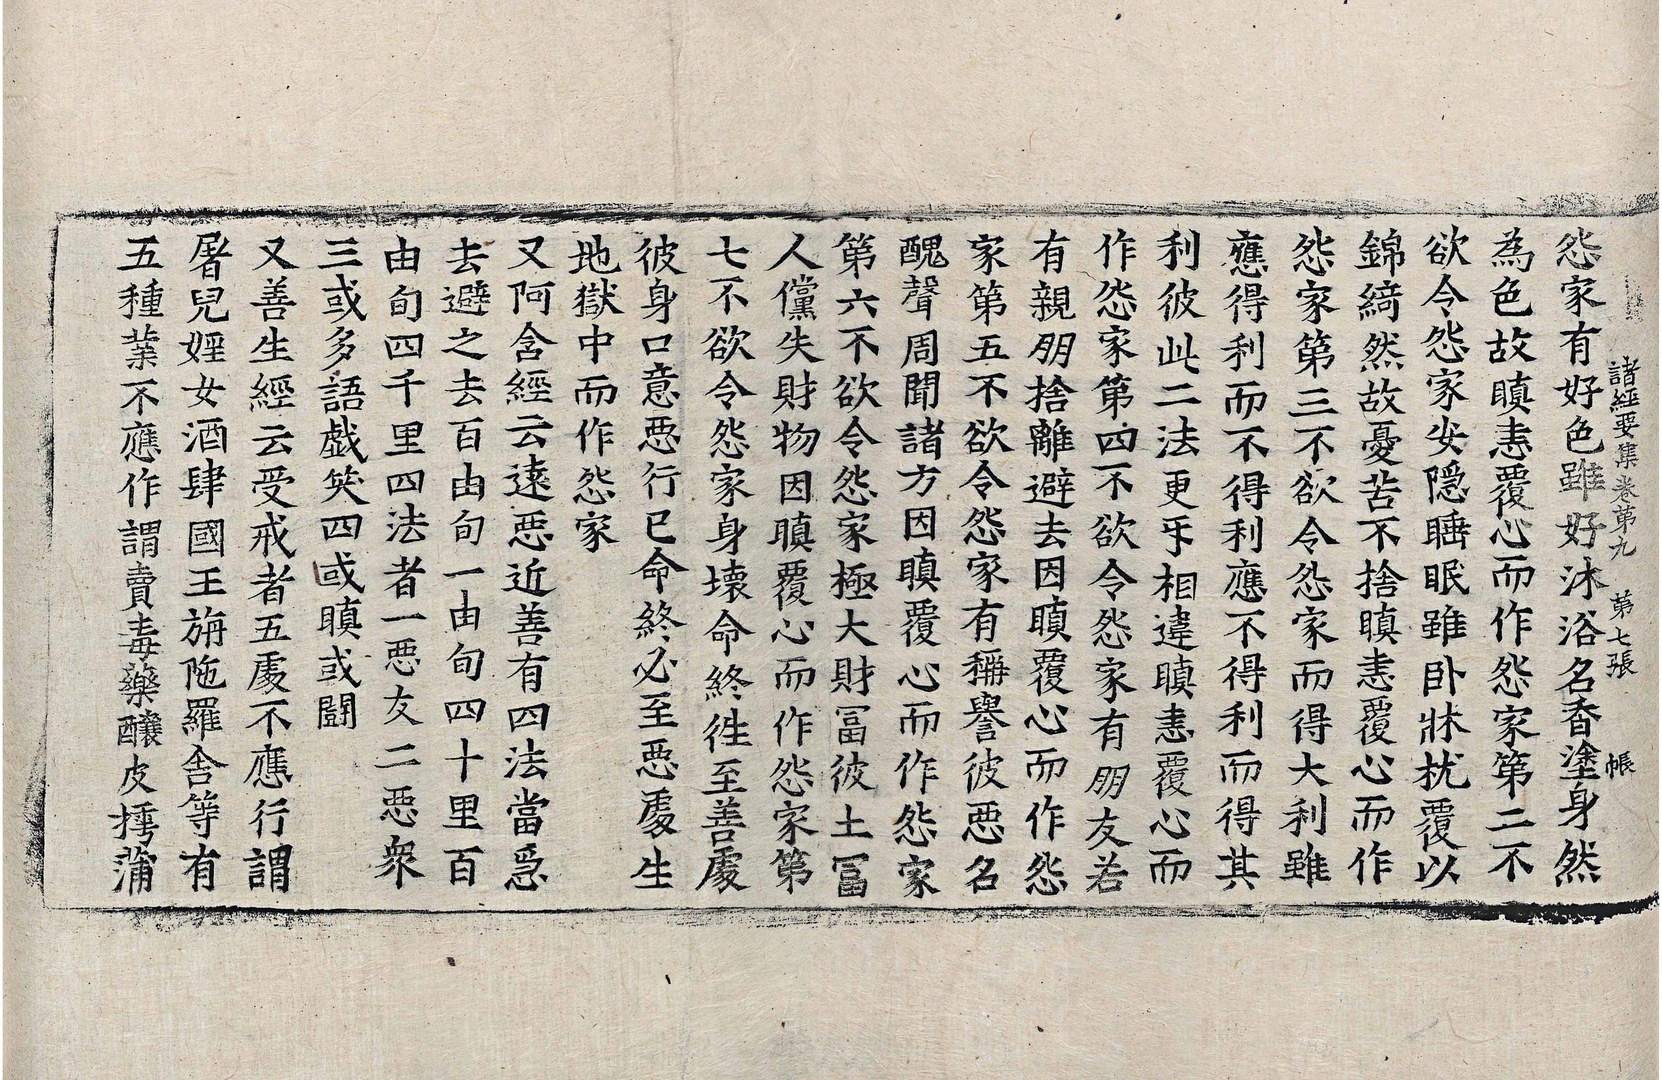 諸經要集卷第九 第七張 帳
怨家有好色雖好沐浴名香塗身然
為色故瞋恚覆心而作怨家第二不
欲令怨家安隱睡眠雖卧牀枕覆以
錦綺然故憂苦不捨瞋恚覆心而作
怨家第三不欲令怨家而得大利雖
應得利而不得利應不得利而得其
利彼此二法更乐相違瞋恚覆心而
作怨家第四不欲令怨家有朋友若
有親朋捨離避去因瞋覆心而作怨
家第五不欲令怨家有稱譽彼惡名
醜聲周聞諸方因瞋覆心而作怨家
第六不欲令怨家極大財冨彼土冨
人儻失財物因瞋覆心而作怨家第
七不欲令怨家身壞命終徃至善處
彼身口意惡行已命終必至惡處生
地獄中而作怨家
又阿含經云遠惡近善有四法當急
去避之去百由旬一由旬四十里百
由旬四千里四法者一惡友二惡衆
三或多語戲笑四或瞋或鬪
又善生經云受戒者五處不應行謂
屠兒婬女酒肆國王旃陁羅舍等有
五種業不應作謂賣毒藥釀皮摴蒲